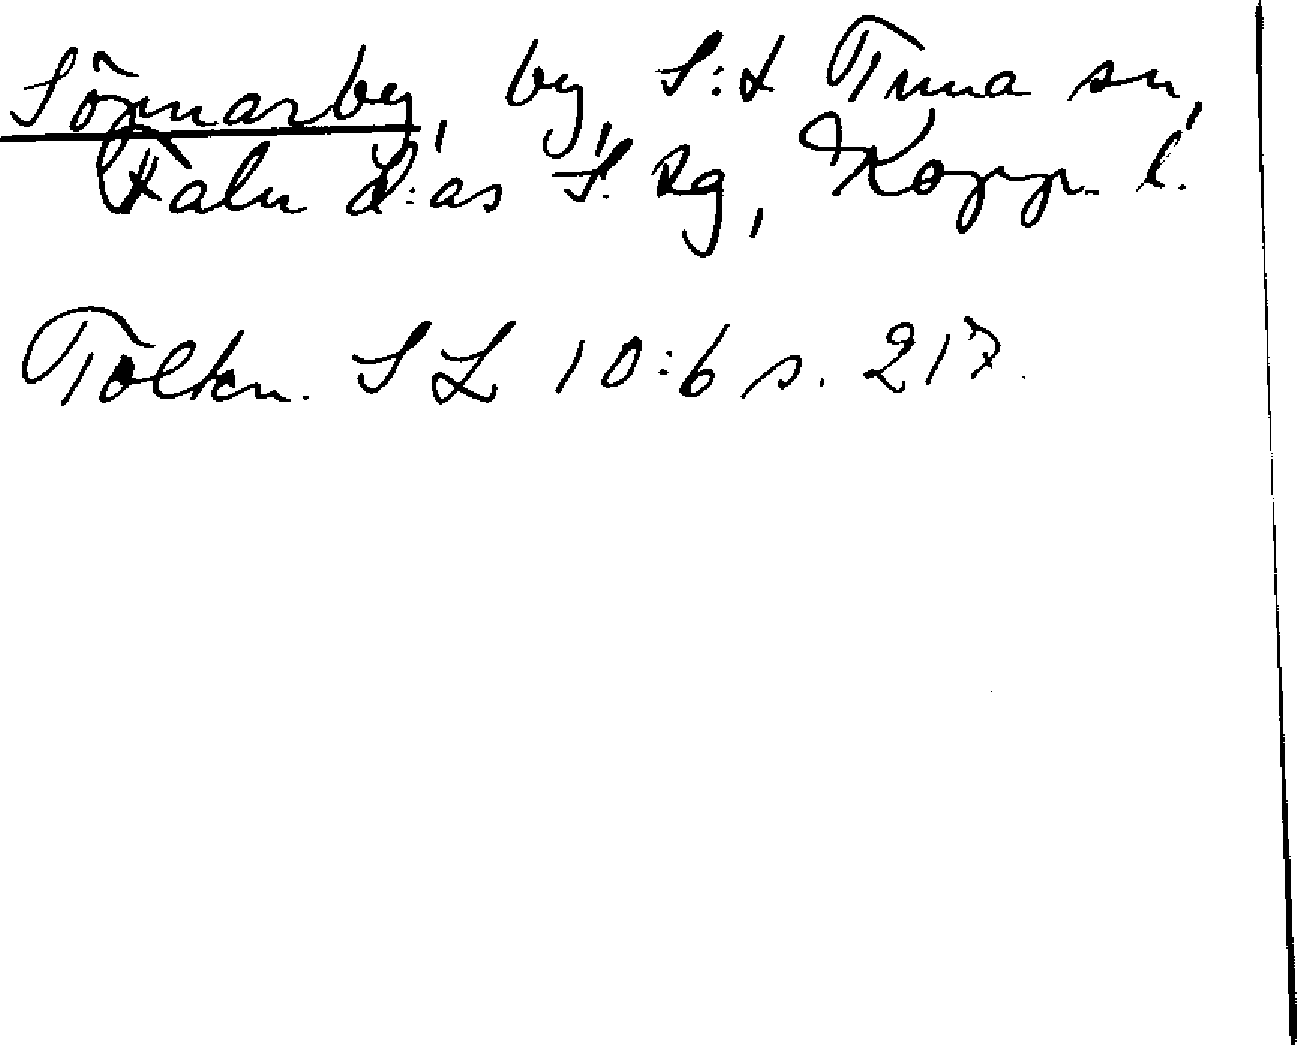 Sönnarby, by, S:t Tuna sn,
Falu d:as S. tg, Kopp. l.
Tolkn. SL 10:6 s. 217.